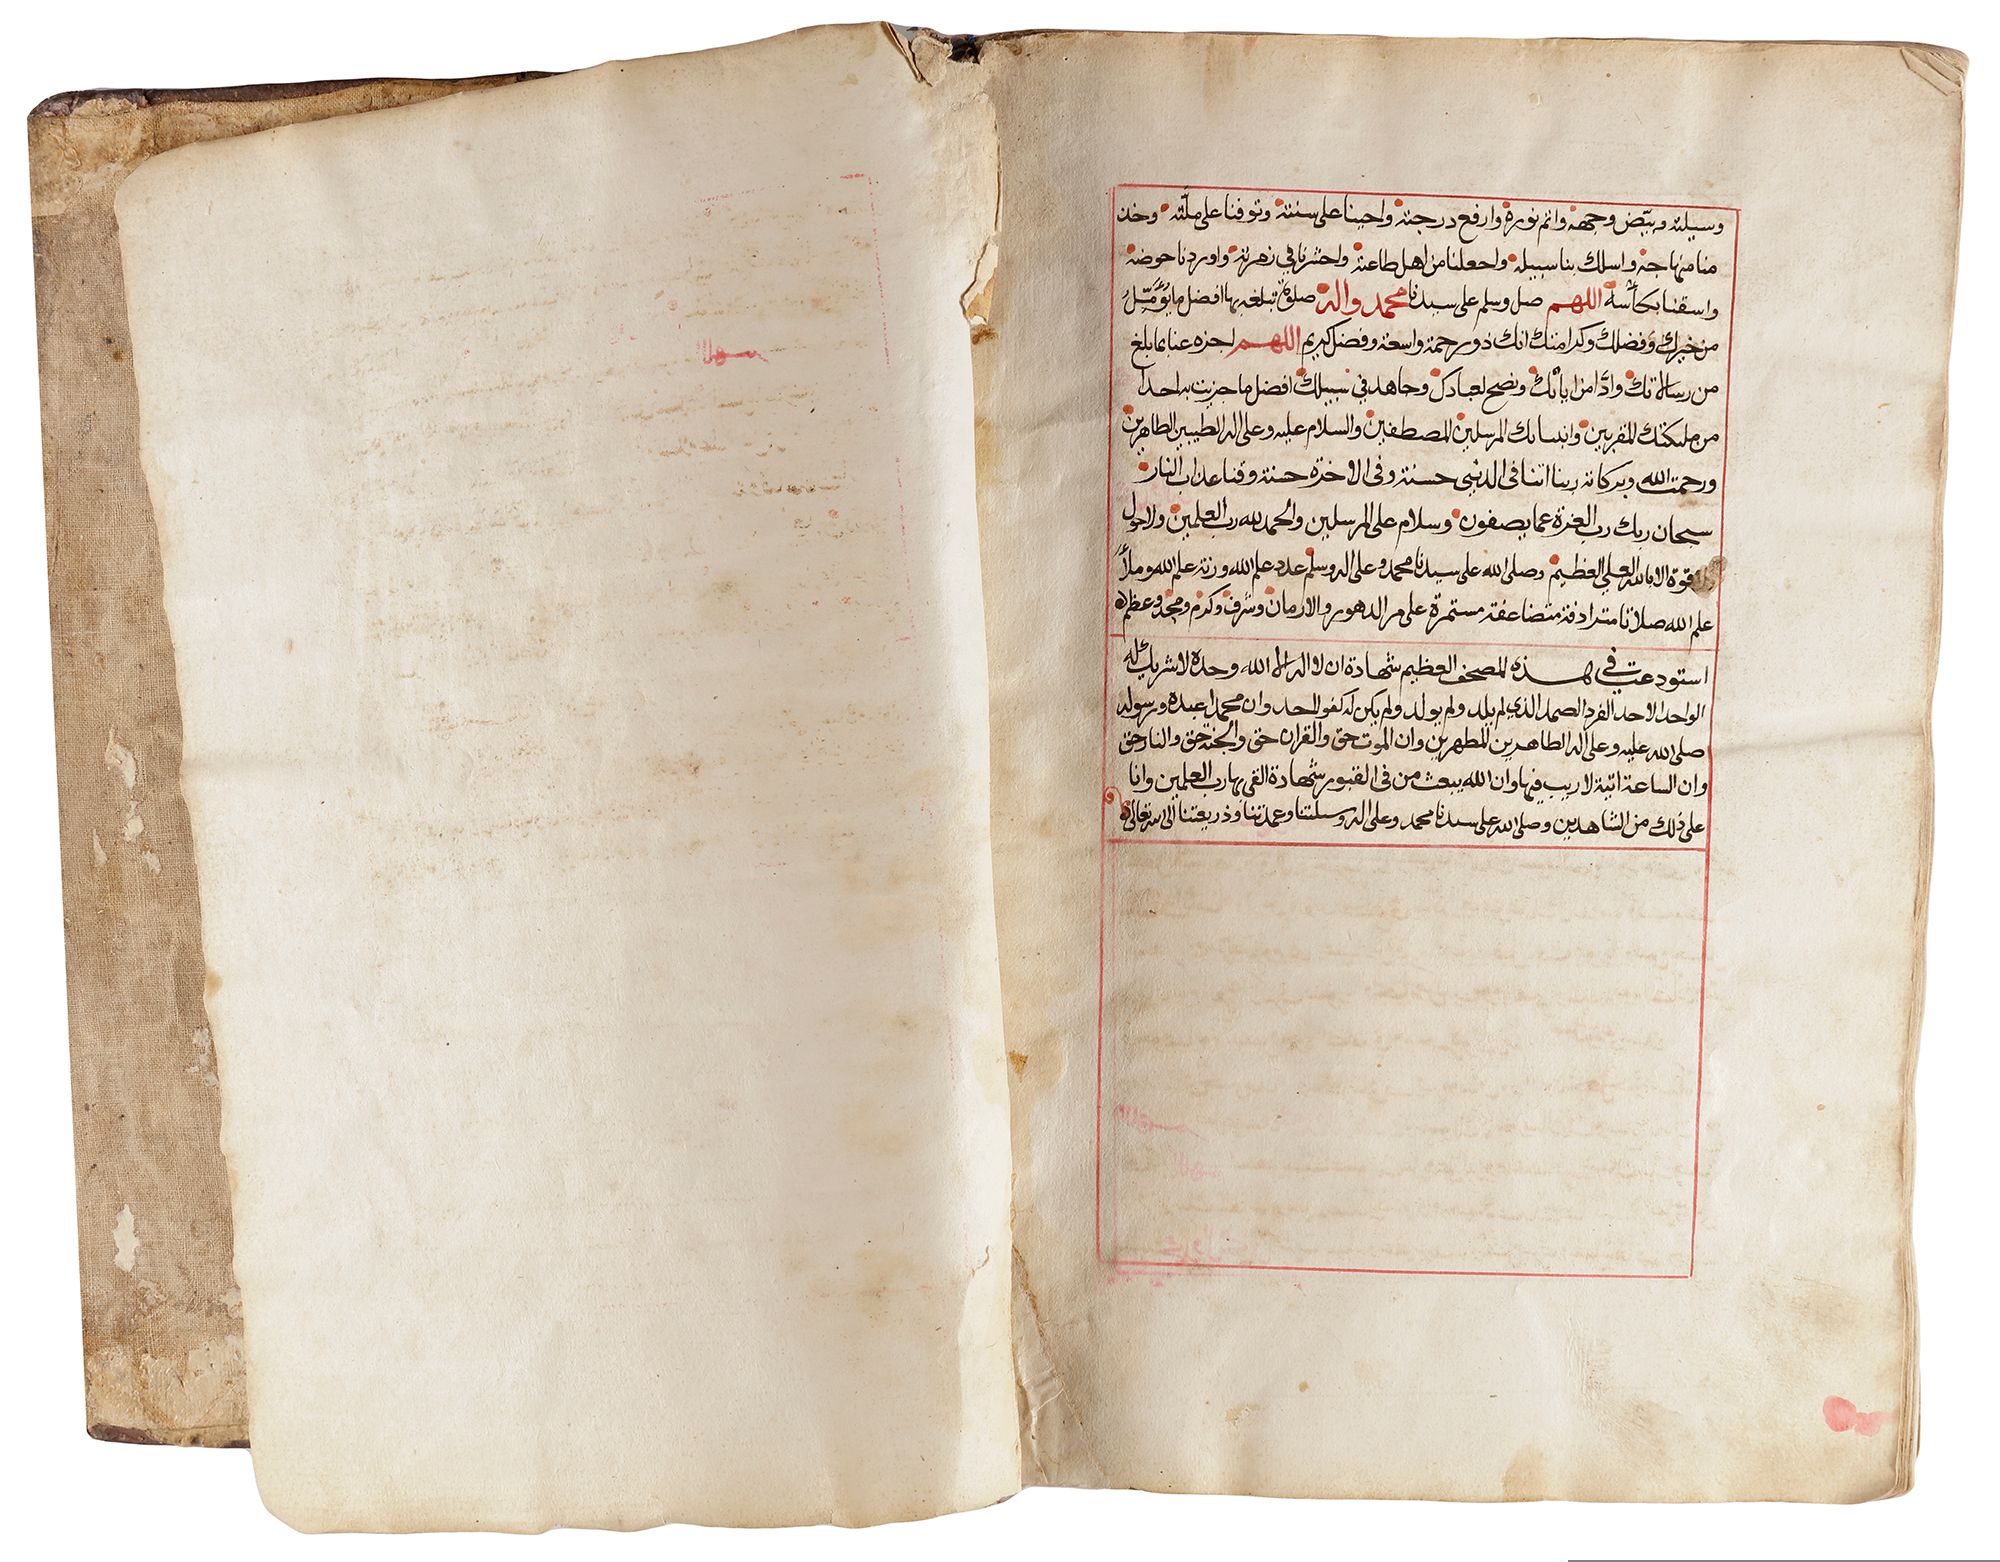 وسيلته وبيّض وجهه واتم نوره وارفع درجته واحينا على سنته وتوفنا على ملّته وخذ
منا منهاجه واسلك بنا سبيله واجعلنا من اهل طاعته واحشرنا في زمرته واوردنا حوضه
واسقنا بكأسه اللهم صل وسلم على سيدنا محمد واله صلوة تبلغه بها افضل ما يؤمّل
من خيرك وفضلك وكرامتك انك ذو رحمة واسعة وفضل كريم اللهم اجزه عنا بما بلغ
من رسالاتك وادّا من اياتك ونصح لعبادك وجاهد في سبيلك افضل ما جزيت به احدا
من مليكتك المقربين وانبيائك المرسلين المصطفين والسلام عليه وعلى اله الطيبين الطاهرين
ورحمت الله وبركاته ربنا اتنا في الدنيى حسنة وفي الاخرة حسنة وقنا عذاب النار
سبحان ربك رب العزة عما يصفون وسلام على المرسلين والحمد لله رب العلمين ولا حول
ولا قوة الا بالله العلي العظيم وصلى الله على سيدنا محمد وعلى اله وسلم عدد علم الله وزنة علم الله وملأ
علم الله صلاتا مترادفة متضاعفة مستمرة على مر الدهور والازمان وشرف وكرم ومجد وعظم
استودعت في هذه المصحف العظيم شهادة ان لا اله الا الله وحده لا شريك له
الواحد الاحد الفرد الصمد الذي لم يلد ولم يولد ولم يكن له كفوا احد وان محمدا عبده ورسوله
صلى الله عليه وعلى اله الطاهرين المطهرين وان الموت حق والقران حق والجنة حق والنار حق
وان الساعة اتية لا ريب فيها وان الله يبعث من في القبور شهادة القى بها رب العلمين وانا
على ذلك من الشاهدين وصلى الله على سيدنا محمد وعلى اله وسيلتنا وعمدتنا وذريعتنا الى الله تعالى